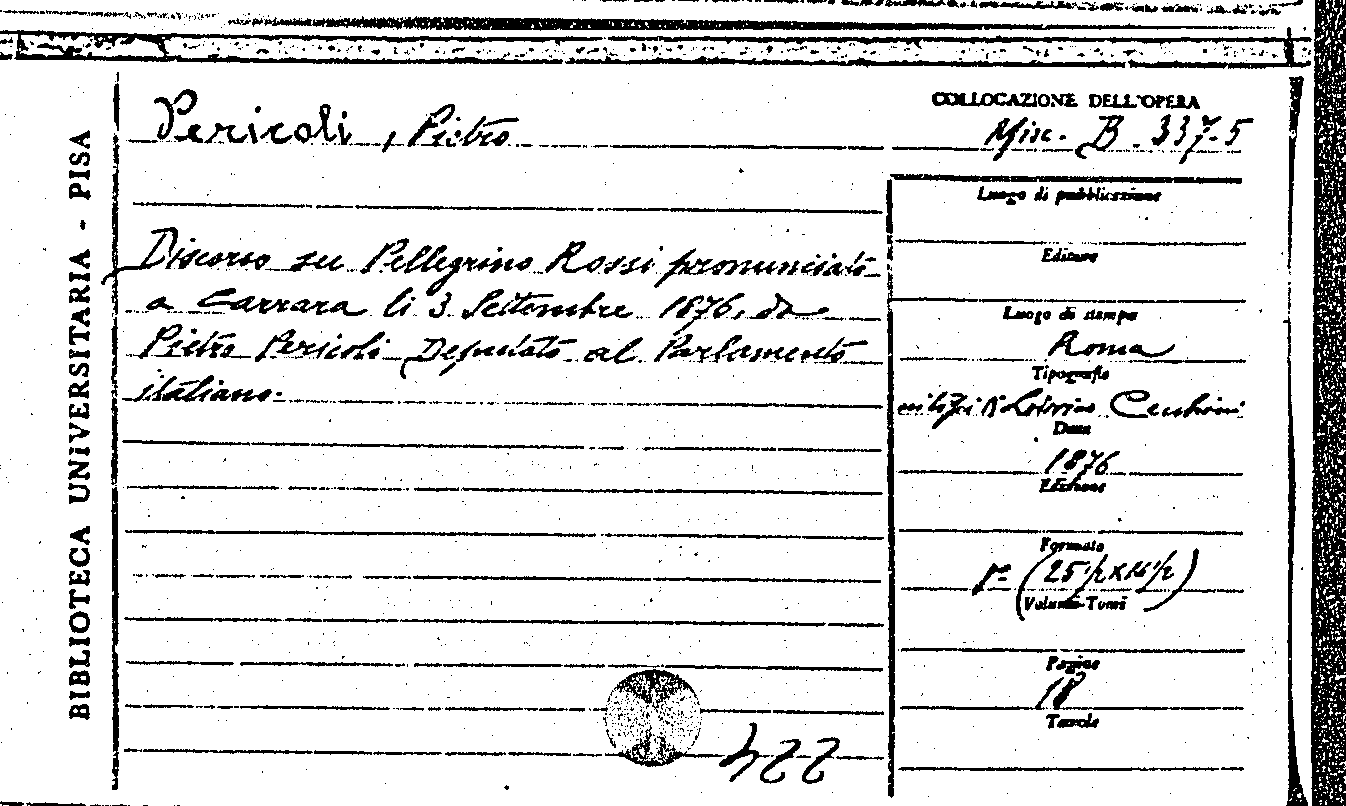 BIBLIOTECA UNIVERSITARIA - PISA
Pericoli, Pietro
Discorso su Pellegrino Rossi pronunciato
a Carrara li 3 Settembre 1876, da
Pietro Pericoli Deputato al Parlamento
italiano.
422
COLLOCAZIONE DELL'OPERA
Misc. B. 337-5
Luogo di pubblicazione
Editore
Luogo di stampa
Roma
Tipografia
Data
1876
Edizione
Formato
(25 1/2 x 16 1/2)
Volumi-Tomi
Pagine
18
Tavole